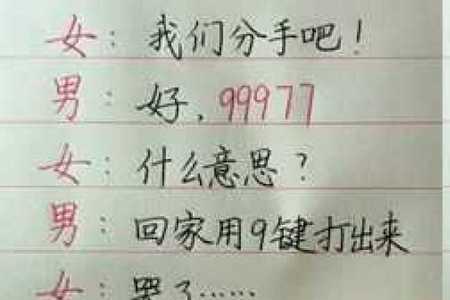 女：我们分手吧！
男：好，99977
女：什么意思？
男：回家用9键打出来
女：哭了……